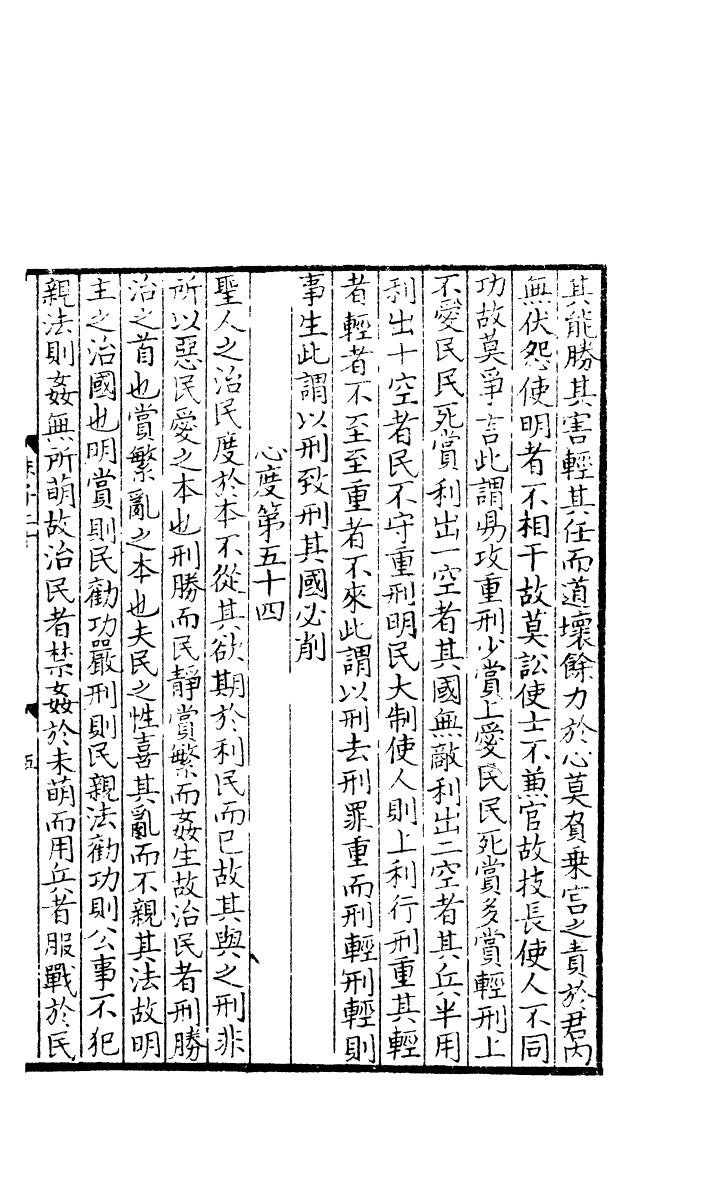 其能勝其害輕其任而道壞餘力於心莫負乗官之責於君內
無伏怨使明者不相干故莫訟使士不兼官故技長使人不同
功故莫爭言此謂易攻重刑少賞上愛民民死賞多賞輕刑上
不愛民民死賞利出一空者其國無敵利出二空者其兵半用
利出十空者民不守重刑明民大制使人則上利行刑重其輕
者輕者不至至重者不來此謂以刑去刑罪重而刑輕刑輕則
事生此謂以刑致刑其國必削
心度第五十四
聖人之治民度於本不從其欲期於利民而已故其與之刑非
所以惡民愛之本也刑勝而民靜賞繁而姦生故治民者刑勝
治之首也賞繁亂之本也夫民之性喜其亂而不親其法故明
主之治國也明賞則民勸功嚴刑則民親法勸功則公事不犯
親法則姦無所萌故治民者禁姦於未萌而用兵者服戰於民
五